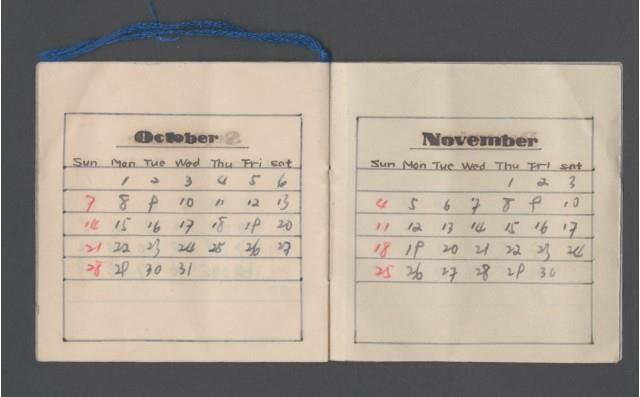 October
Sun Mon Tue Wed Thu Fri Sat
1 2 3 4 5 6
7 8 9 10 11 12 13
14 15 16 17 18 19 20
21 22 23 24 25 26 27
28 29 30 31
November
Sun Mon Tue Wed Thu Fri Sat
1 2 3
4 5 6 7 8 9 10
11 12 13 14 15 16 17
18 19 20 21 22 23 24
25 26 27 28 29 30